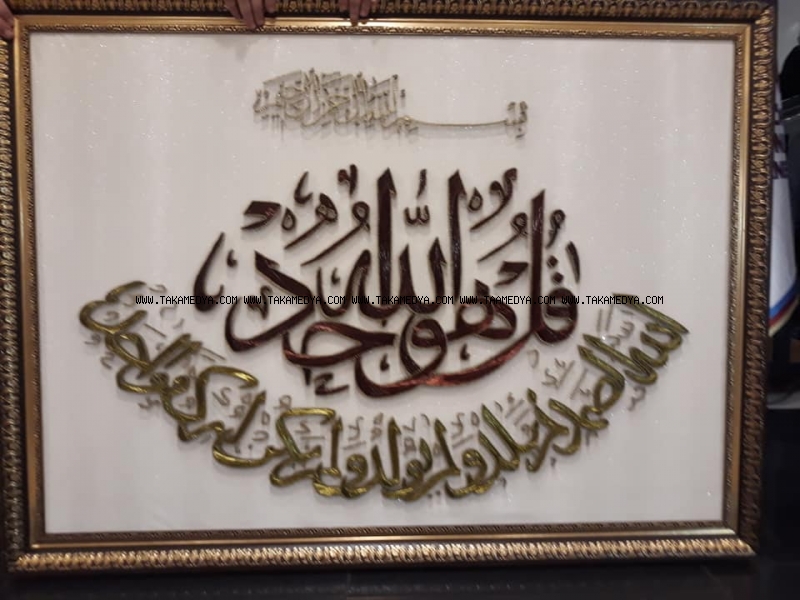 بسم الله الرحمن الرحيم
قل هو الله أحد
الله الصمد لم يلد ولم يولد ولم يكن له كفوا أحد
WWW.TAKAMEDYA.COM WWW.TAKAMEDYA.COM WWW.TAKAMEDYA.COM WWW.TAAMEDYA.COM WWW.TAKAMEDYA.COM